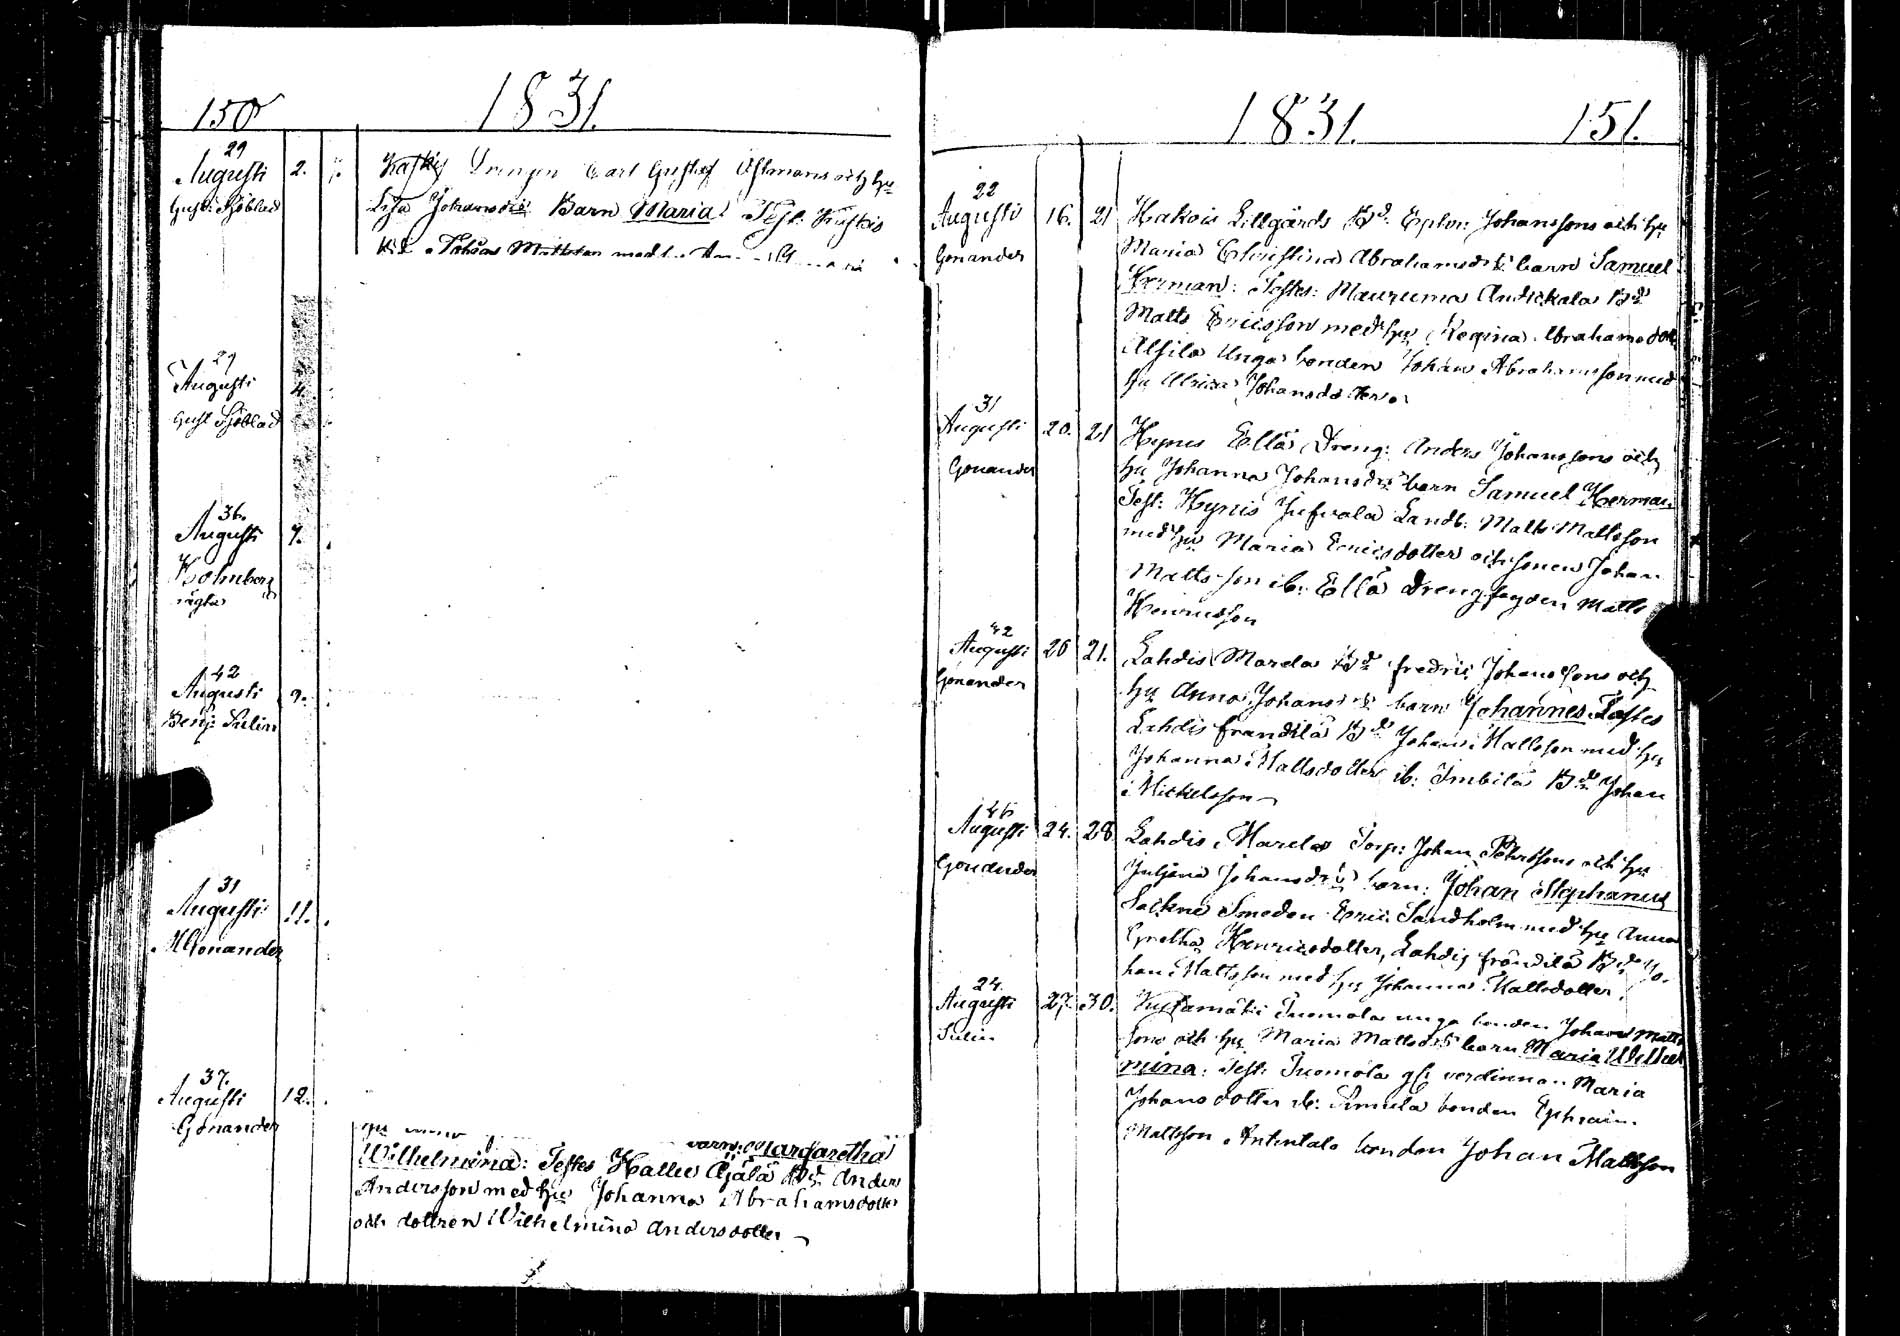 150 1831.
29
Augusti 2. 7.
Gust: Sjöblad
Kaskis Drengen Carl Gustaf Östmans och hu
Lisa Johansdrs Barn Maria: Test:
Johan Mattsson med hu
29
Augusti 4.
Gust Sjöblad
36.
Augusti 7.
Holmberg
42
Augusti 9.
Benj: Sulin
31
Augusti 11.
Gonander
37.
Augusti 12.
Gonander
barn: Margaretha
Wilhelmina: Testes Hallu Äjälä Bd: Anders
Andersson med hu Johanna Abrahamsdotter
och dottren Wilhelmina Andersdotter
1831. 151.
22
Augusti 16. 21
Gonander
Hakois Lillgårds Bd: Ephr: Johanssons och hu
Maria Christina Abrahamsdrs barn Samuel
Herman: Testes: Mauruma Anttikala Bd
Matts Ericsson med hu Regina Abrahamsdott
Alsila Unga bonden Johan Abrahamsson med
hu Ulrica Johansdotter
31
Augusti 20. 21
Gonander
Hynis Ellä Dreng: Anders Johanssons och
hu Johanna Johansdrs barn Samuel Herman
Test: Hynis Landb: Matts Mattsson
med hu Maria Ericsdotter och sonen Johan
Mattsson ib: Ellä Drengsgden Matts
Henricsson
42
Augusti 20 21.
Gonander
Lahdis Marela Bd fredric Johanssons och
hu Anna Johansdrs barn Johannes Testes
Lahdis frändilä Bd Johan Mattsson med hu
Johanna Mattsdotter ib: Imbilä Bd Johan
Mickelsson
46
Augusti 24. 28
Gonander
Lahdis Marela Torp: Johan Pehrssons och hu
Juliana Johansdrs barn: Johan Stephanus
Smeden Eric Sandholm med hu Anna
Gretha Henricsdotter, Lahdis frändilä Bd Jo-
han Mattsson med hu Johanna Mattsdotter.
24.
Augusti 27. 30.
Sulin
Tuomola unga bonden Johan Matts
sons och hu Maria Mattsdrs barn Maria Wilhel
mina: Test: Tuomola gl: verdinnan Maria
Johansdotter ib: Simula bonden Ephraim
Mattsson Anttntalo bonden Johan Mattsson